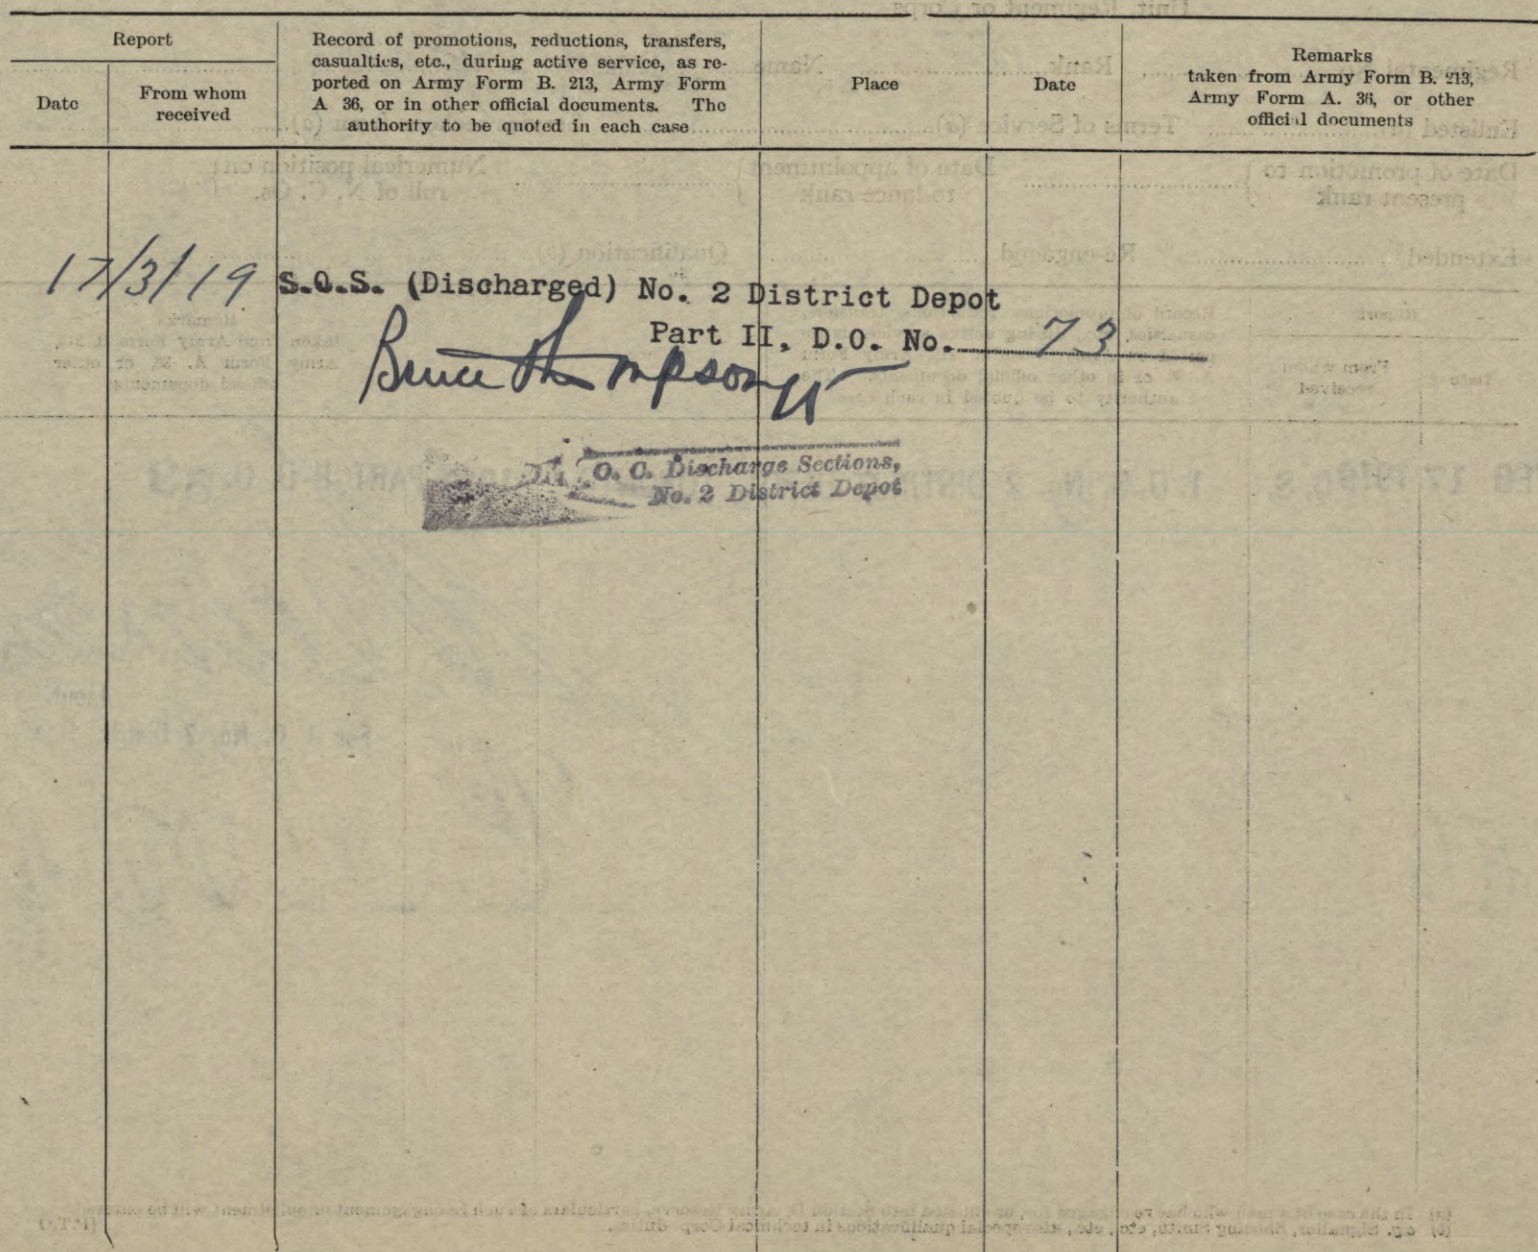 Report
Date
From whom
received
Record of promotions, reductions, transfers,
casualties, etc., during active service, as re-
ported on Army Form B. 213, Army Form
A 36, or in other official documents. The
authority to be quoted in each case
Place
Date
Remarks
taken from Army Form B. 213,
Army Form A. 36, or other
official documents
17/3/19 S.O.S. (Discharged) No. 2 District Depot
Part II, D.O. No. 73
Bruce Thompson
O. C. Discharge Sections,
No. 2 District Depot